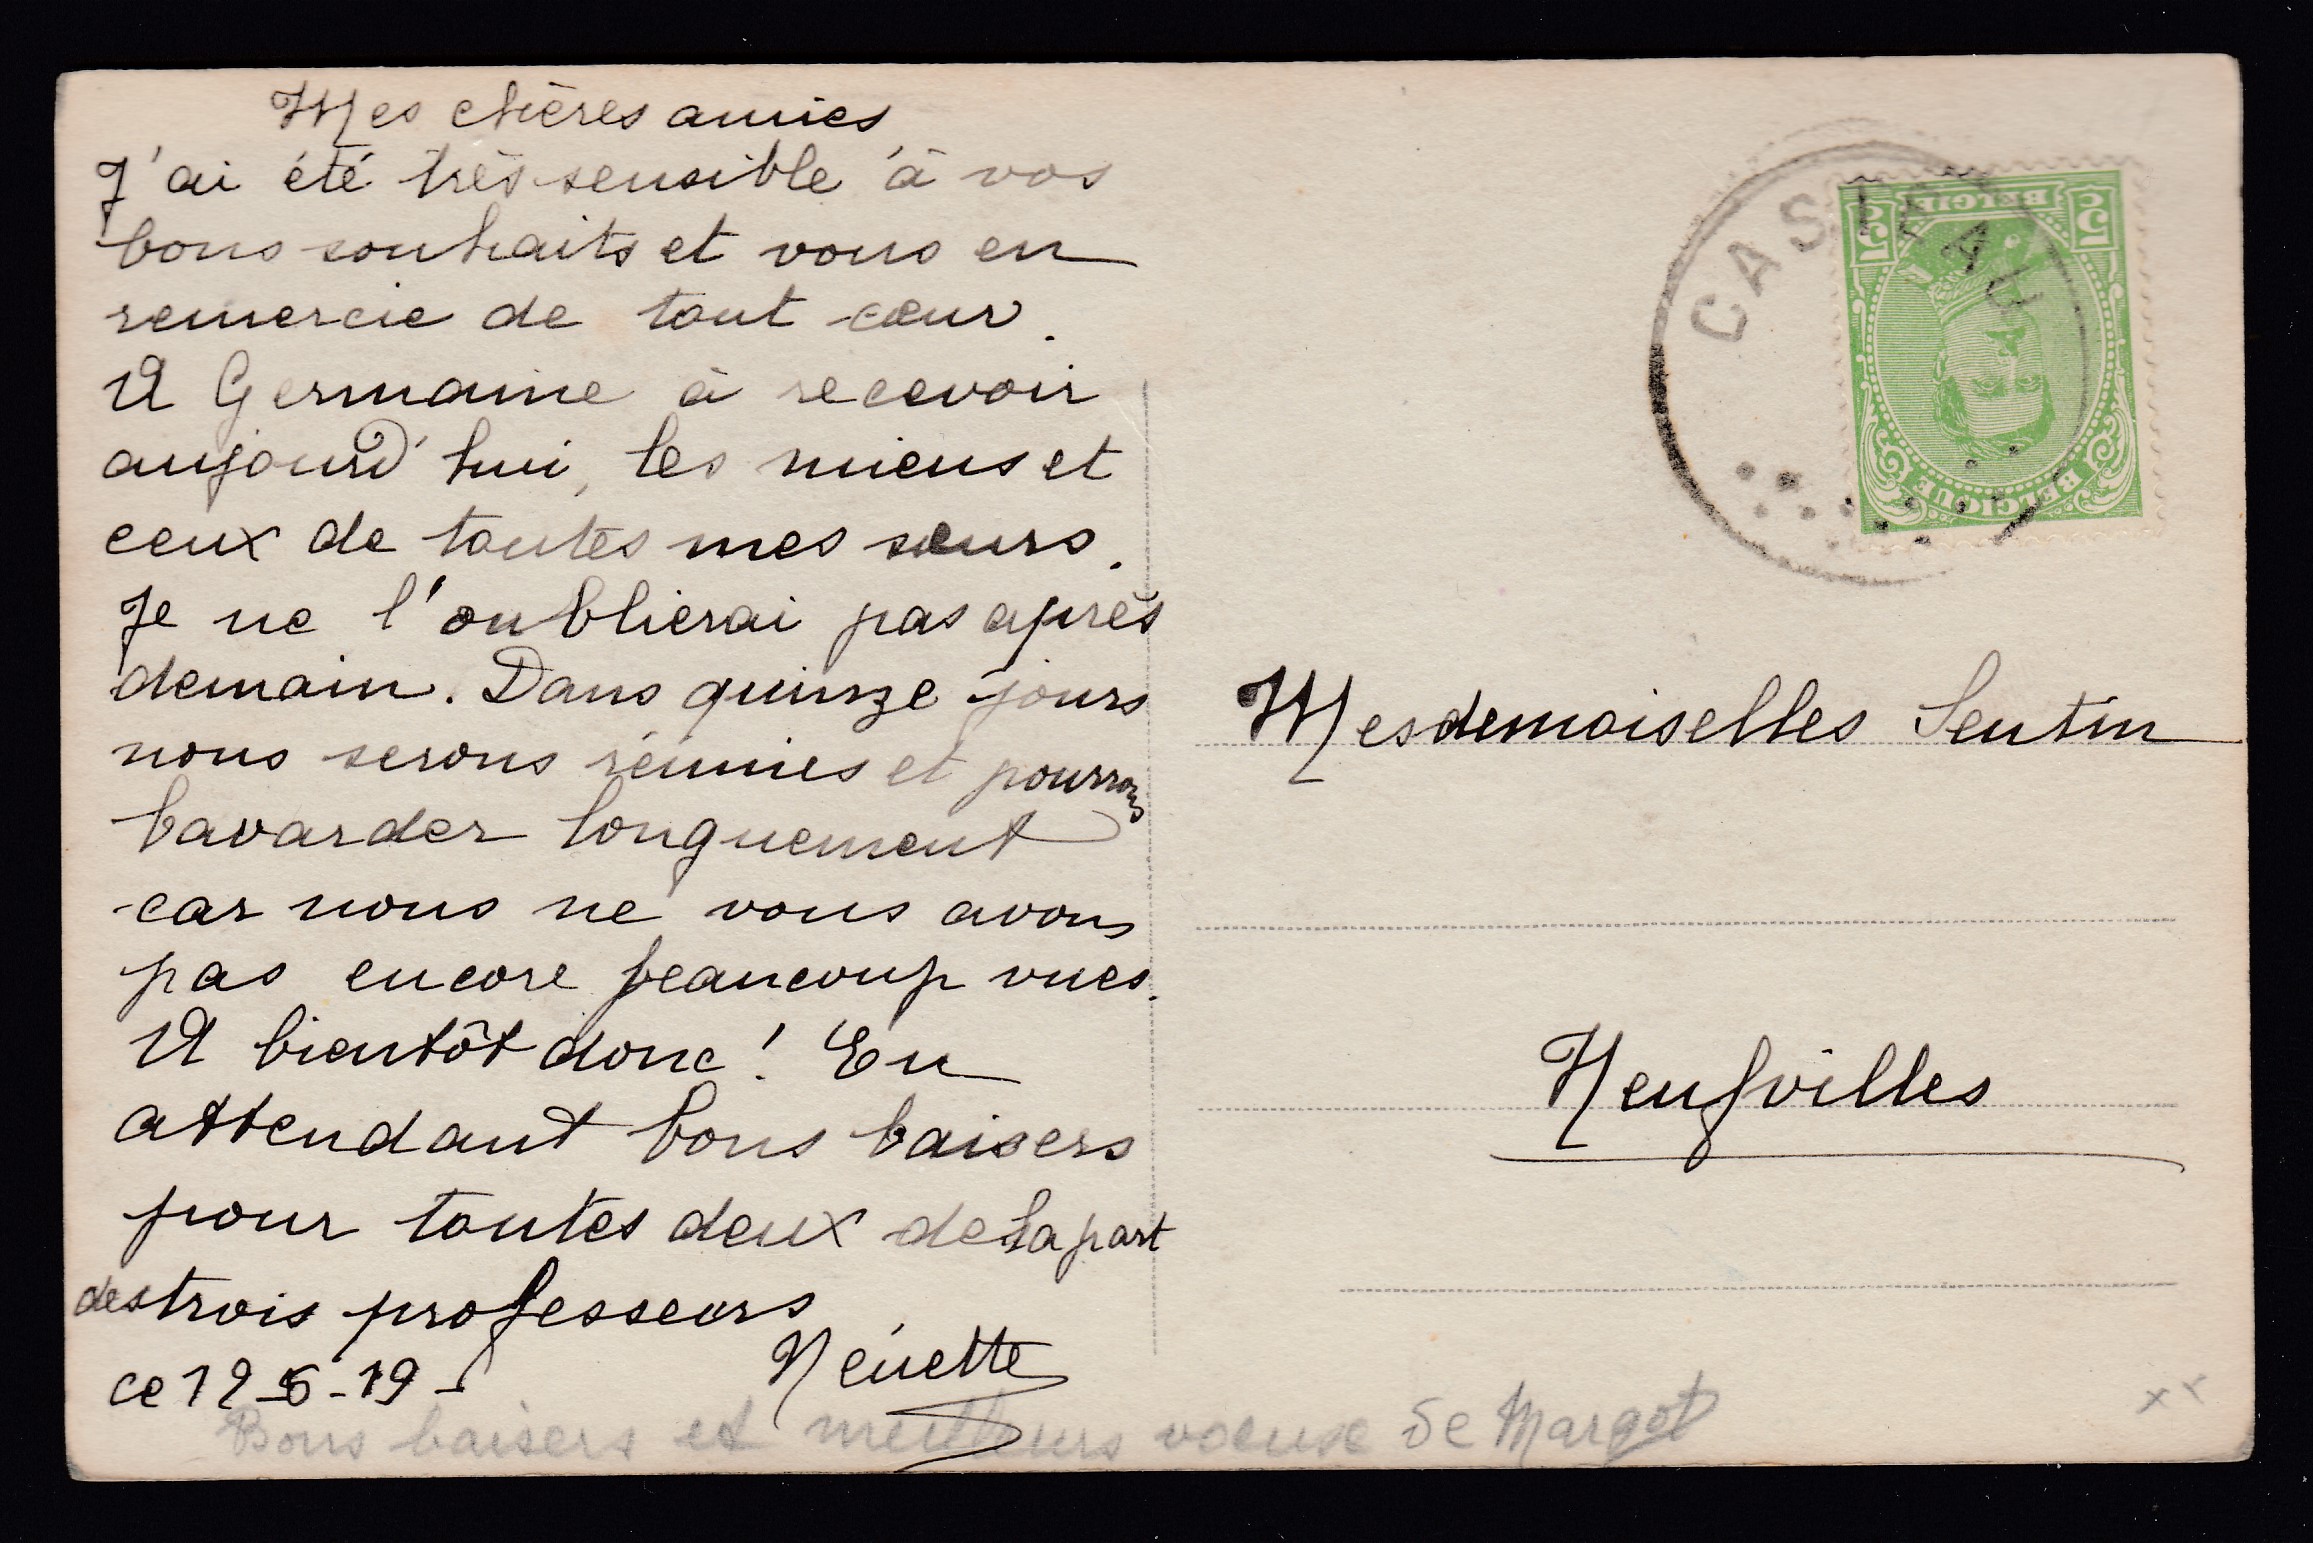 Mes chères amies
J'ai été très sensible à vos
bons souhaits et vous en
remercie de tout cœur.
A Germaine à recevoir
aujourd'hui, les miens et
ceux de toutes mes sœurs.
Je ne l'oublierai pas après
demain. Dans quinze jours
nous serons réunies et pourrons
bavarder longuement
car nous ne vous avons
pas encore beaucoup vues.
A bientôt donc! En
attendant bons baisers
pour toutes deux de la part
des trois professeurs
ce 12-6-19-
Nénette
Bons baisers et meilleurs voeux de Margot
CASTEAU
5c BELGIE 5c
BELGIQUE
Mesdemoiselles Sentin
Neufvilles
xx